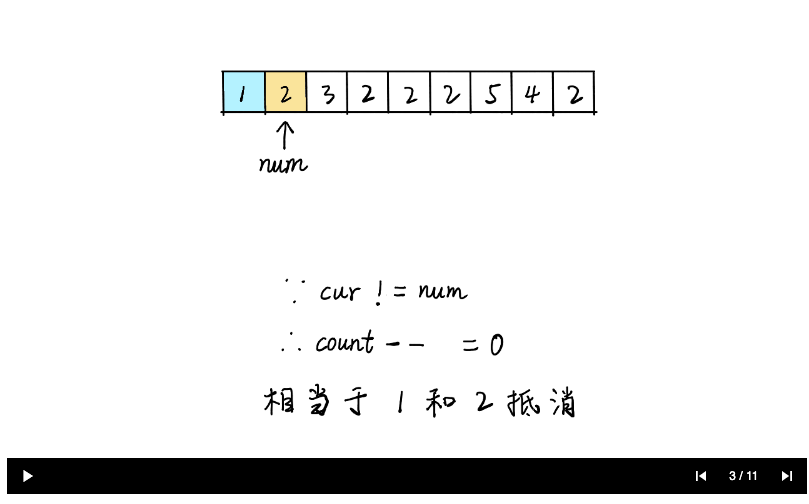 1 2 3 2 2 2 5 4 2
num
∵ cur != num
∴ count-- = 0
相当于 1 和 2 抵消
3 / 11